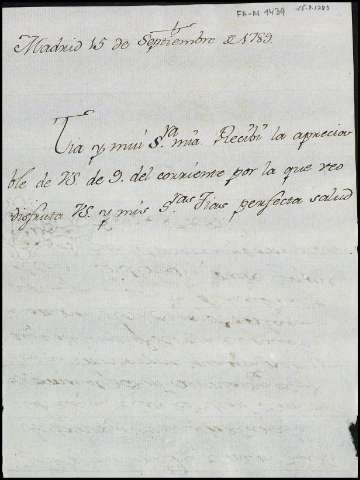 FA-M 1439
15-9-1789
Madrid 15 de Septiembre de 1789
Tia y mui S.ra mia Recibi la aprecia-
ble de VS. de 9. del corriente por la que veo
disfruta VS. y mis S.ras Tias perfecta salud